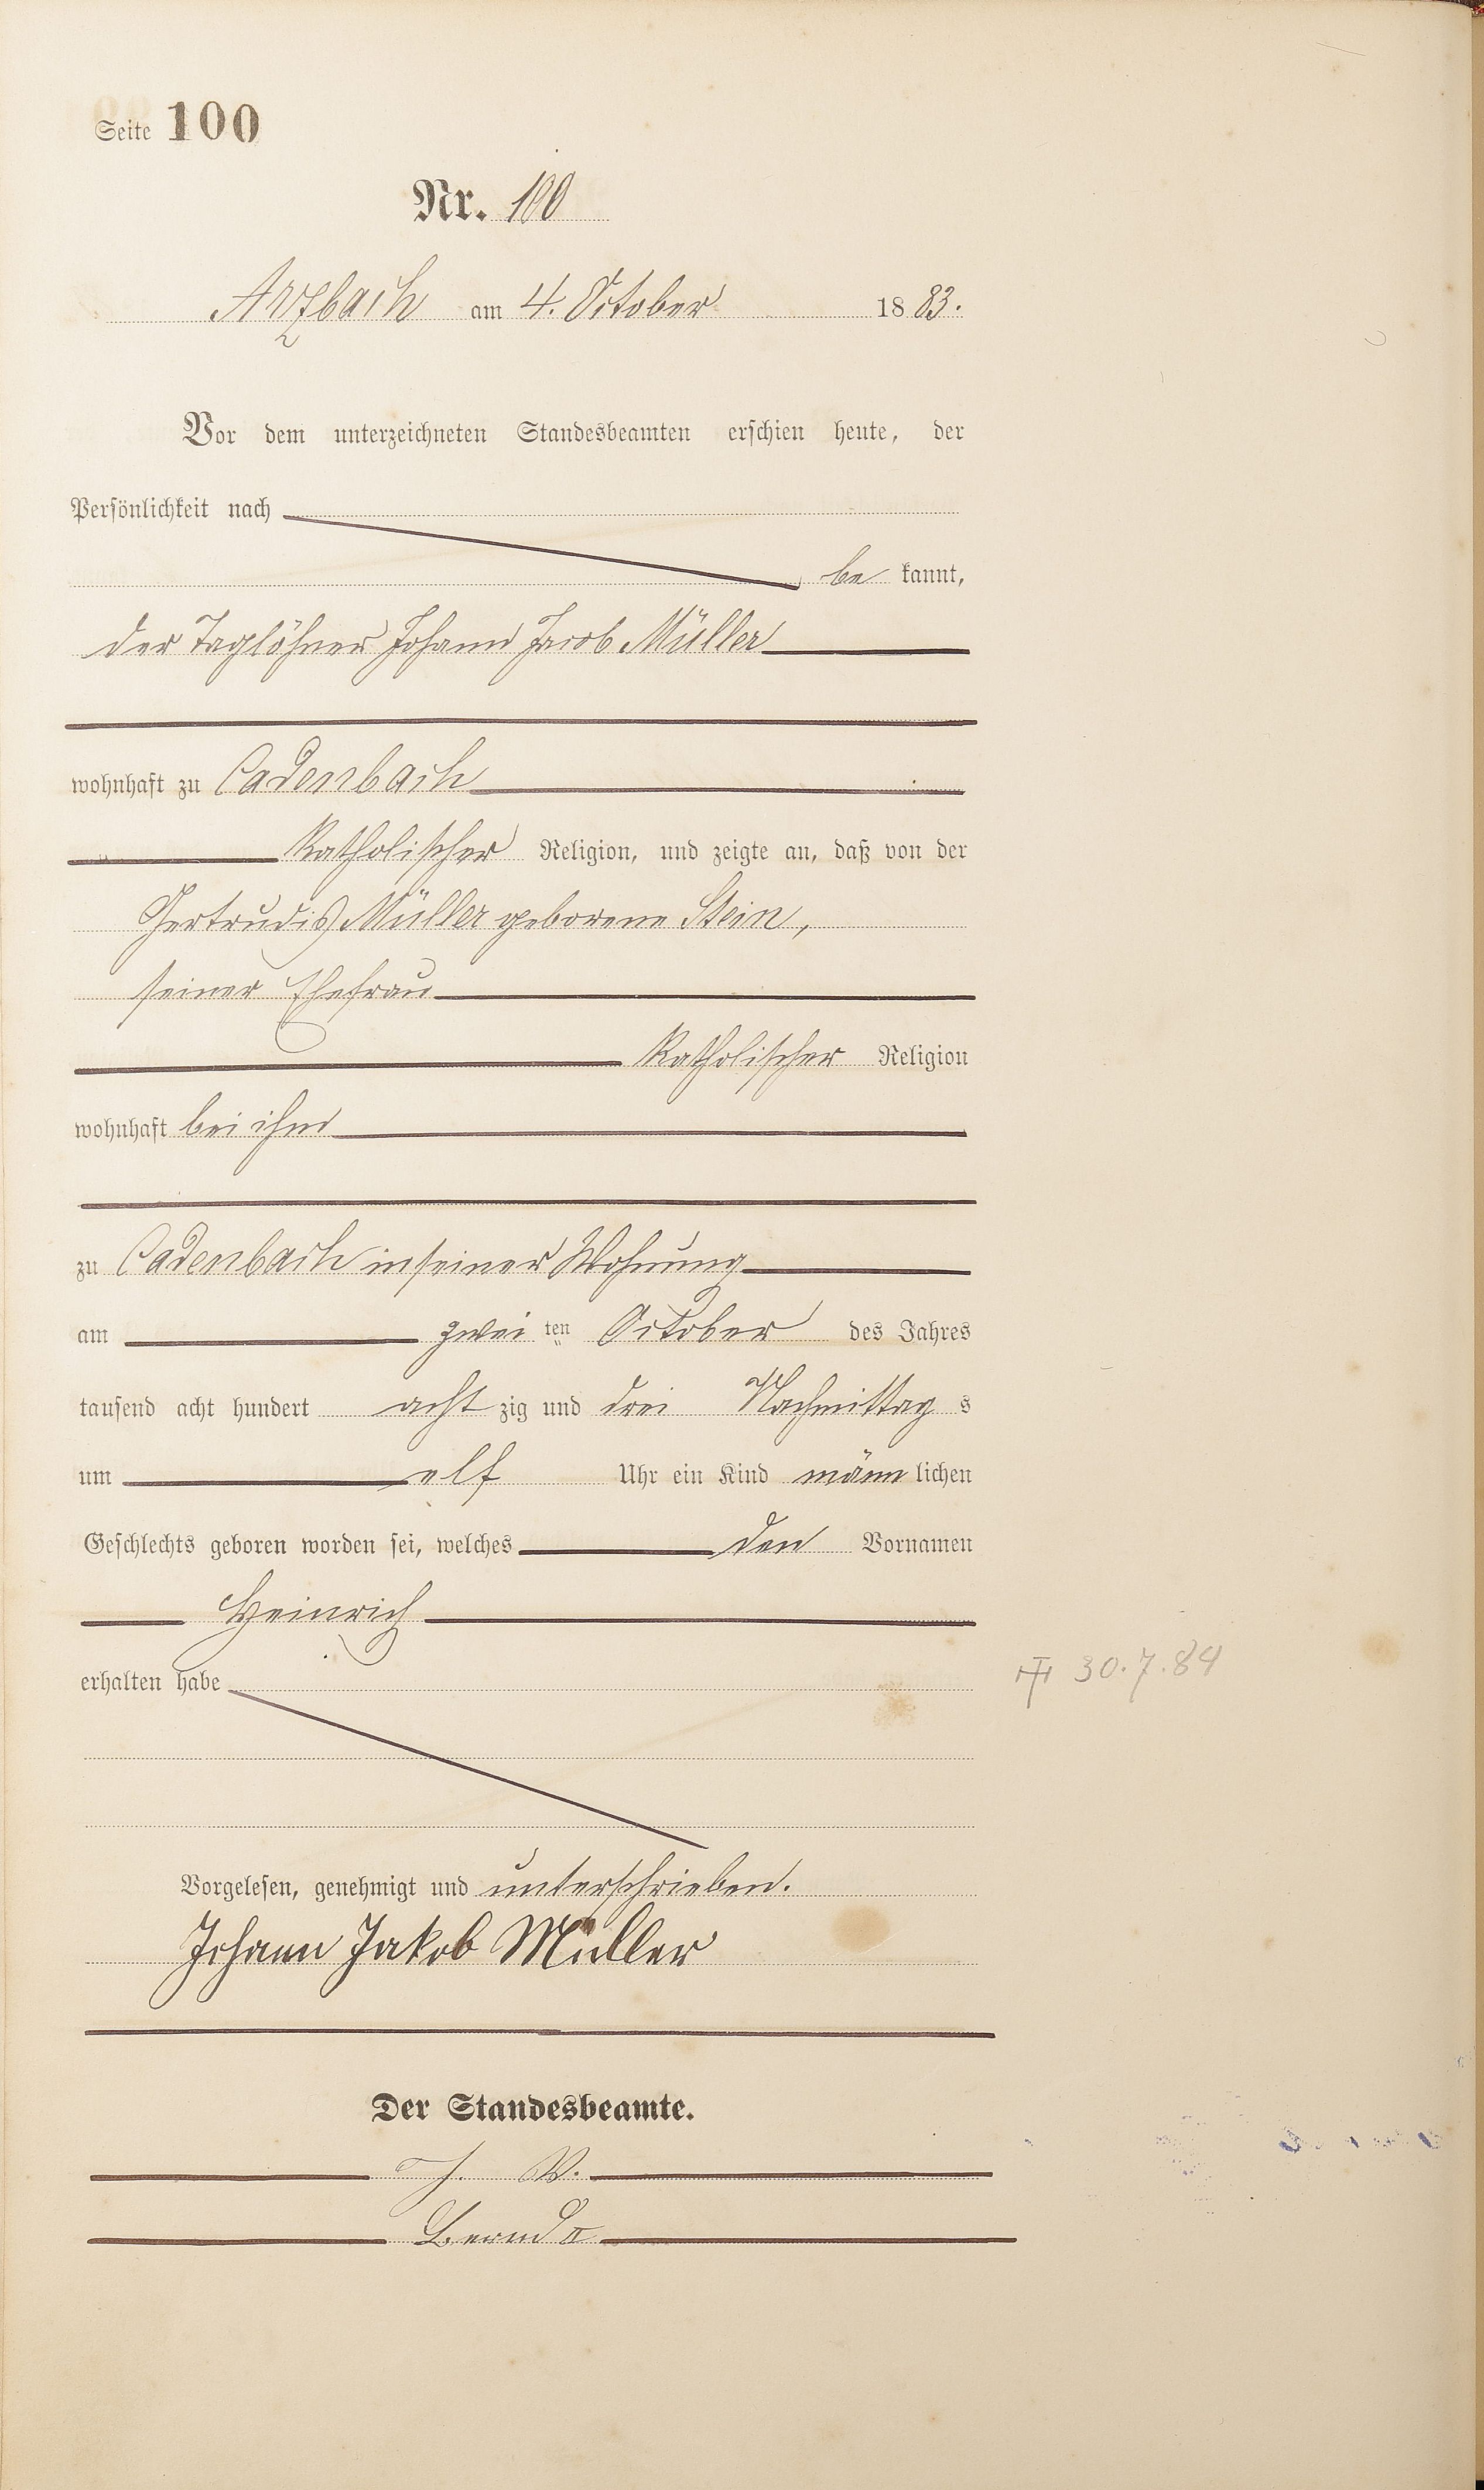 Seite 100
Nr. 100
Arzbach am 4. October 1883.
Vor dem unterzeichneten Standesbeamten erschien heute, der
Persönlichkeit nach
be kannt,
der Taglöhner Johann Jacob Müller
wohnhaft zu Cadenbach
Katholischer Religion, und zeigte an, daß von der
Gertrudis Müller geborene Stein,
seiner Ehefrau
Katholischer Religion
wohnhaft bei ihm
zu Cadenbach in seiner Wohnung
am zwei ten October des Jahres
tausend acht hundert acht zig und drei Nachmittag s
um elf Uhr ein Kind männ lichen
Geschlechts geboren worden sei, welches den Vornamen
Heinrich
erhalten habe
30.7.84
Vorgelesen, genehmigt und unterschrieben.
Johann Jakob Müller
Der Standesbeamte.